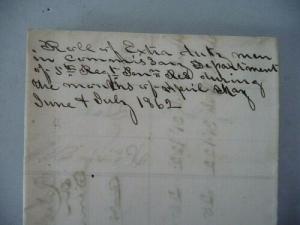 Roll of Extra duty men
in Commissary Department
of 5th Regt Penna Res during
the months of April May
June & July 1862